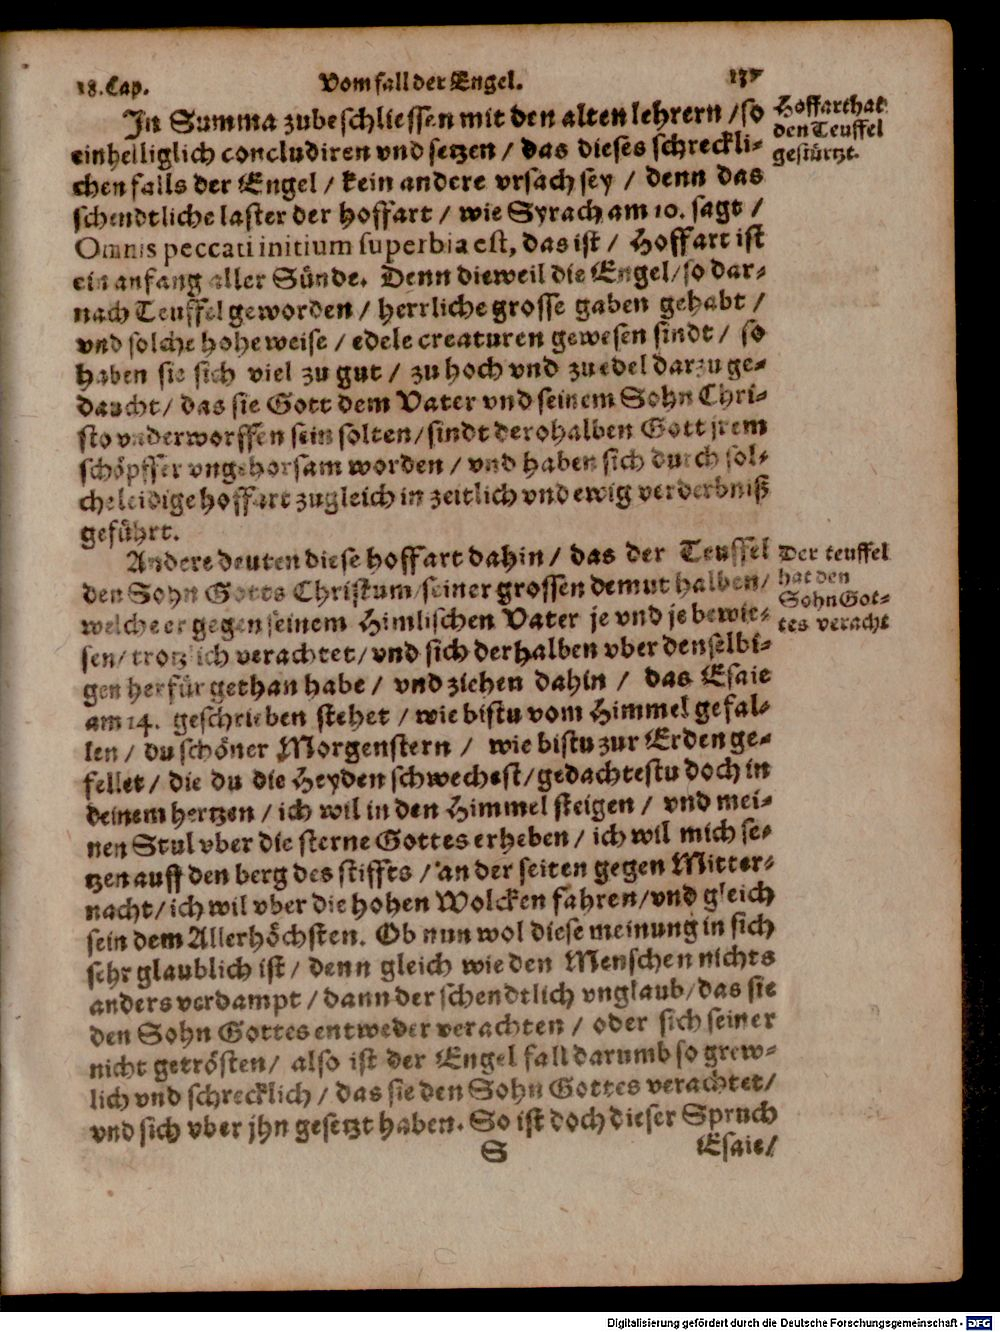 18. Cap.
Vom fall der Engel.
Jn Summa zubeschliessen mit den alten lehrern / so
einhelliglich concludiren vnd setzen / das dieses schreckli-
chen falls der Engel / kein andere vrsach sey / denn das
schendtliche laster der hoffart / wie Syrach am 10. sagt /
Omnis peccati initium superbia est, das ist / Hoffart ist
ein anfang aller Sünde. Denn dieweil die Engel / so dar-
nach Teuffel geworden / herrliche grosse gaben gehabt /
vnd solche hohe weise / edele creaturen gewesen sindt / so
haben sie sich viel zu gut / zu hoch vnd zu edel darzu ge-
daucht / das sie Gott dem Vater vnd seinem Sohn Chri-
sto vnderworffen sein solten / sindt derohalben Gott jrem
schöpffer vngehorsam worden / vnd haben sich durch sol-
che leidige hoffart zugleich in zeitlich vnd ewig verderbniß
geführt.
Hoffart hat
den Teuffel
gestürtzt.
Andere deuten diese hoffart dahin / das der Teuffel
den Sohn Gottes Christum / seiner grossen demut halben /
welche er gegen seinem Himlischen Vater je vnd je bewie-
sen / trotzlich verachtet / vnd sich derhalben vber denselbi-
gen herfür gethan habe / vnd ziehen dahin / das Esaie
am 14. geschrieben stehet / wie bistu vom Himmel gefal-
len / du schöner Morgenstern / wie bistu zur Erden ge-
fellet / die du die Heyden schwechest / gedachtestu doch in
deinem hertzen / ich wil in den Himmel steigen / vnd mei-
nen Stul vber die sterne Gottes erheben / ich wil mich se-
tzen auff den berg des stiffts / an der seiten gegen Mitter-
nacht / ich wil vber die hohen Wolcken fahren / vnd gleich
sein dem Allerhöchsten. Ob nun wol diese meinung in sich
sehr glaublich ist / denn gleich wie den Menschen nichts
anders verdampt / dann der schendtlich vnglaub / das sie
den Sohn Gottes entweder verachten / oder sich seiner
nicht getrösten / also ist der Engel fall darumb so grew-
lich vnd schrecklich / das sie den Sohn Gottes verachtet /
vnd sich vber jhn gesetzt haben. So ist doch dieser Spruch
Der teuffel
hat den
Sohn Got-
tes veracht
S
Esaie /
Digitalisierung gefördert durch die Deutsche Forschungsgemeinschaft - DFG